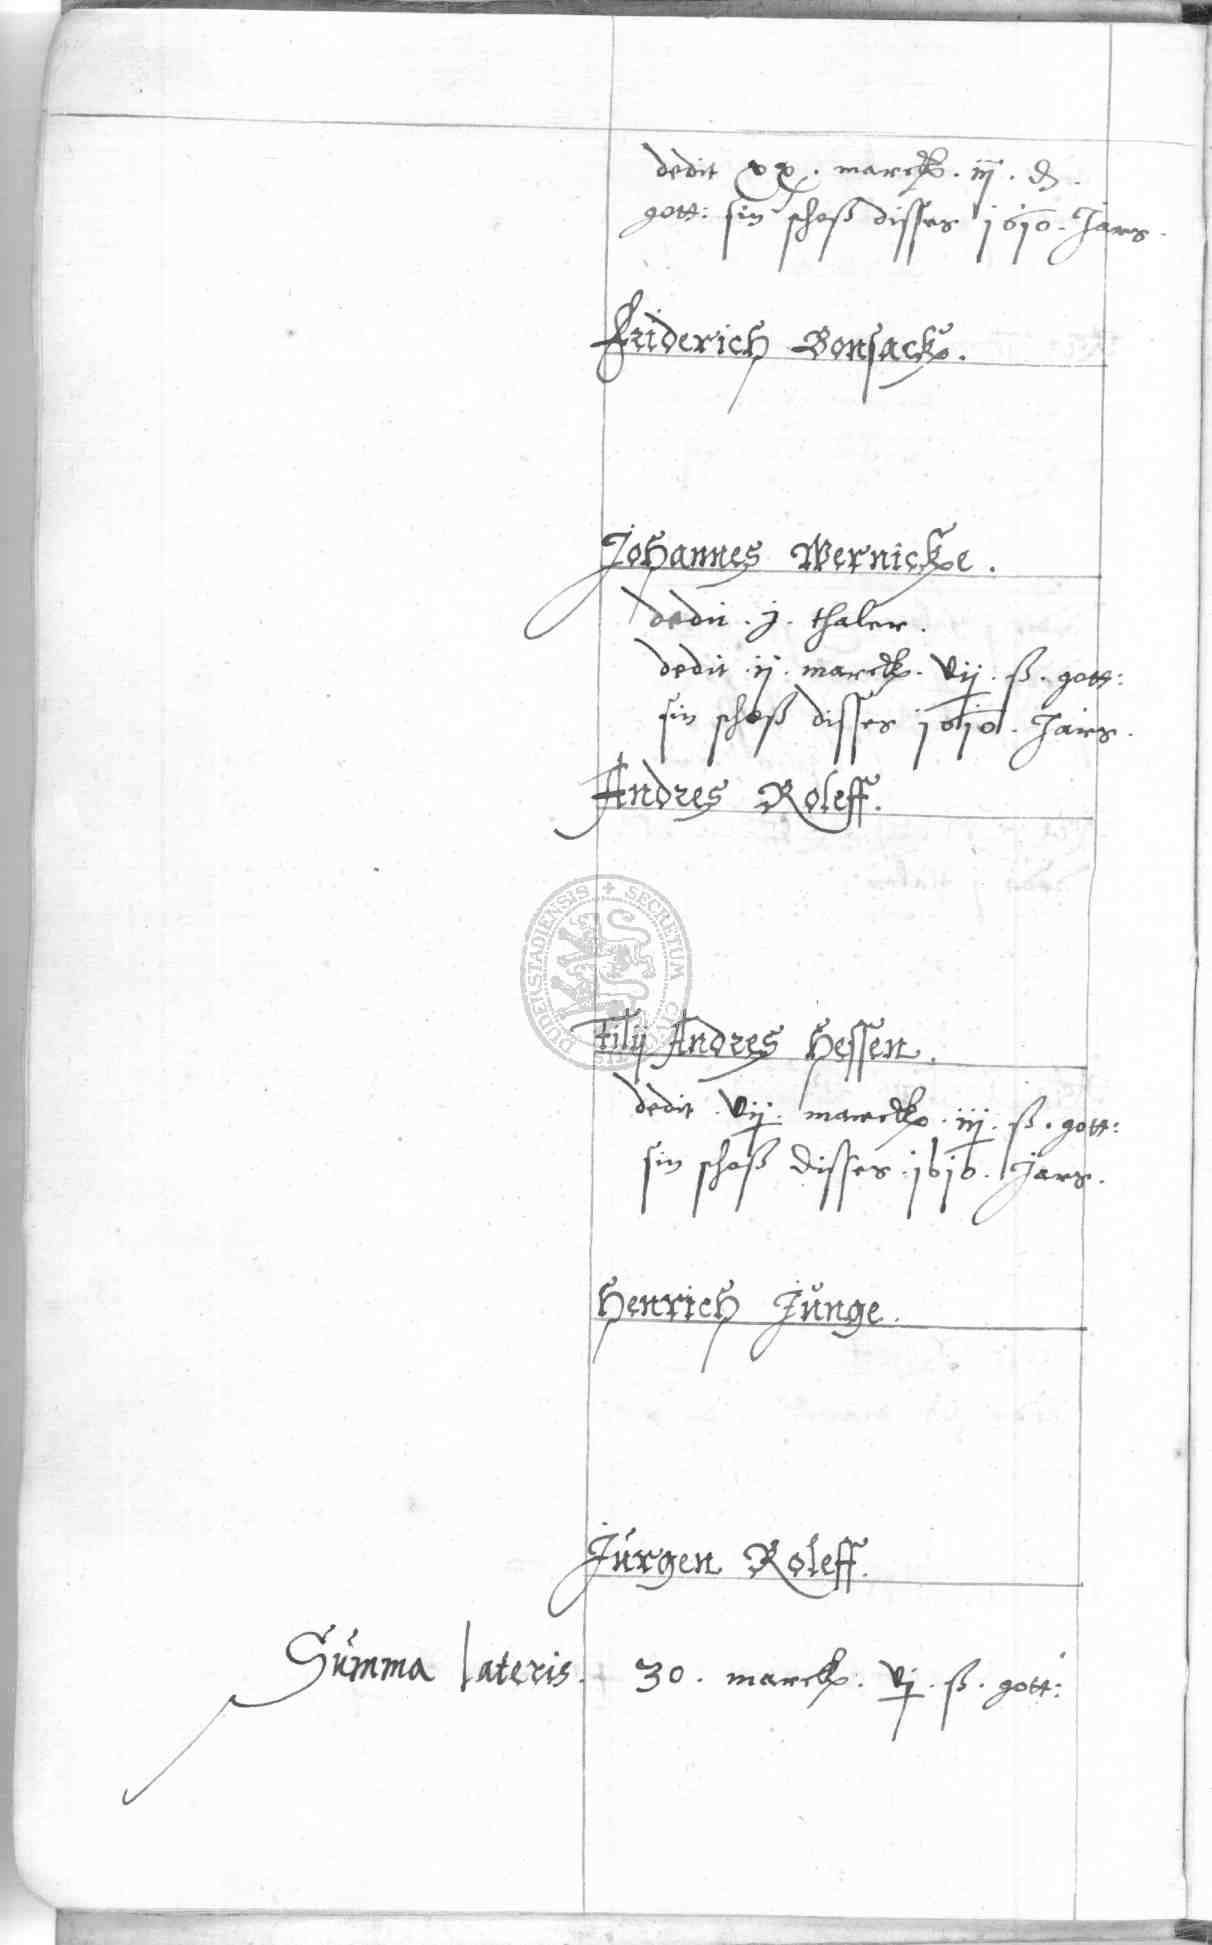 dedit xx. marck. iij. ₰.
gott: sin schoß disses 1610. Jars.
Friderich Bonsack.
Johannes Wernicke.
dedit. j. thaler.
dedit ij. marck. vij. ß. gott:
sin schoß disses 1610. Jars.
Andres Roleff.
SECRETUM DUDERSTADIENSIS
filij Andres Hessen.
dedit vij. marck. iij. ß. gott:
sin schoß disses 1610. Jars.
Henrich Junge.
Jürgen Roleff.
Summa lateris. 30. marck. vj. ß. gott: